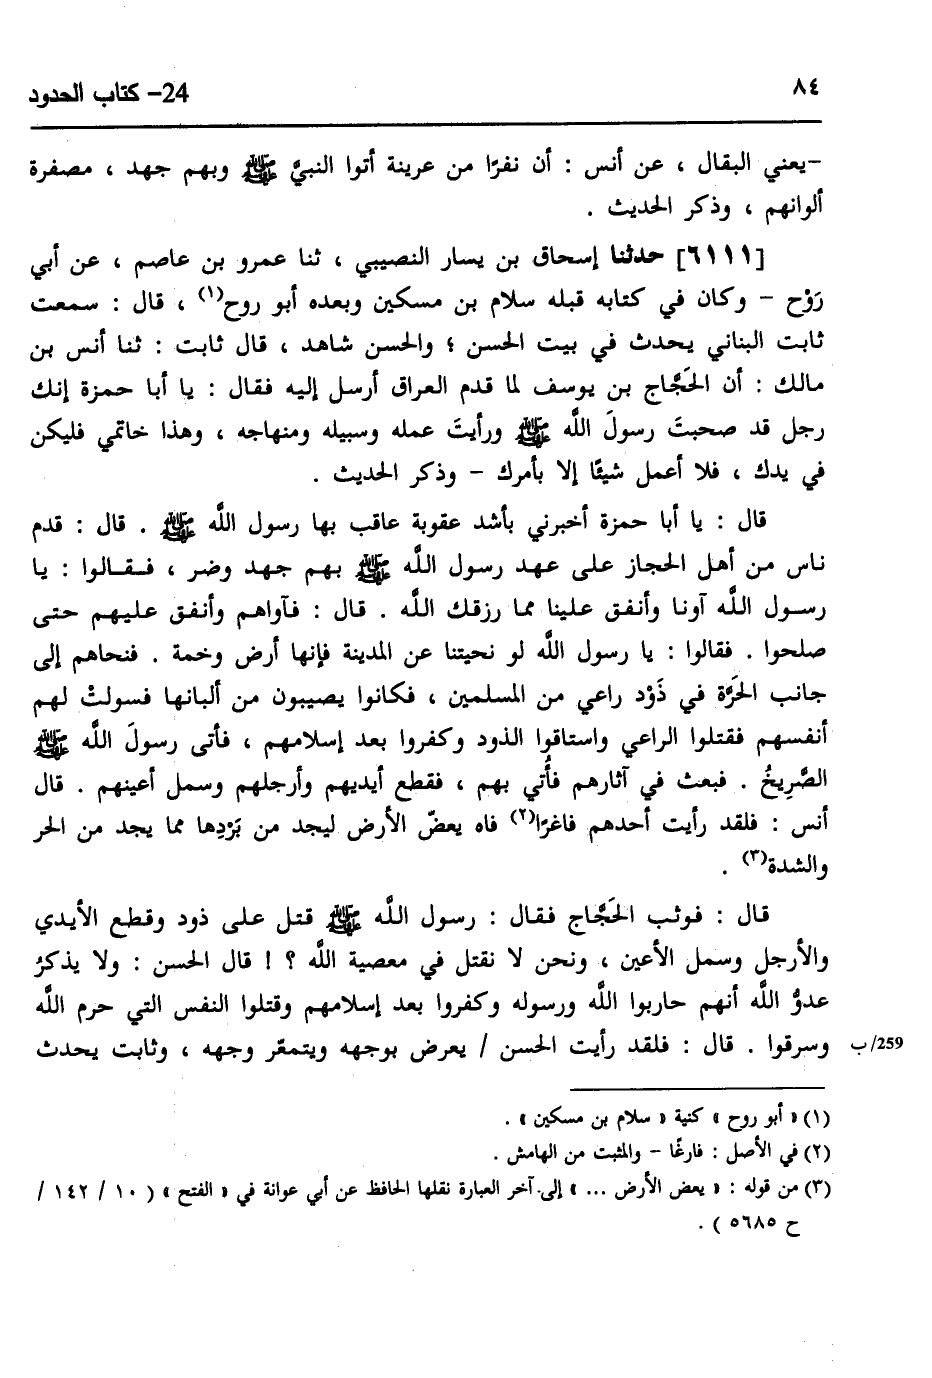 ٨٤
24- كتاب الحدود
-يعني البقال ، عن أنس : أن نفرًا من عرينة أتوا النبيَّ ﷺ وبهم جهد ، مصفرة
ألوانهم ، وذكر الحديث .
[٦١١١] حدثنا إسحاق بن يسار النصيبي ، ثنا عمرو بن عاصم ، عن أبي
رَوْح - وكان في كتابه قبله سلام بن مسكين وبعده أبو روح(١) ، قال : سمعت
ثابت البناني يحدث في بيت الحسن ؛ والحسن شاهد ، قال ثابت : ثنا أنس بن
مالك : أن الحَجَّاج بن يوسف لما قدم العراق أرسل إليه فقال : يا أبا حمزة إنك
رجل قد صحبتَ رسولَ اللَّه ﷺ ورأيتَ عمله وسبيله ومنهاجه ، وهذا خاتمي فليكن
في يدك ، فلا أعمل شيئًا إلا بأمرك - وذكر الحديث .
قال : يا أبا حمزة أخبرني بأشد عقوبة عاقب بها رسول اللَّه ﷺ . قال : قدم
ناس من أهل الحجاز على عهد رسول اللَّه ﷺ بهم جهد وضر ، فـقـالوا : يا
رسـول اللَّـه آونا وأنفق علينا مما رزقك اللَّه . قال : فآواهم وأنفق عليهم حتى
صلحوا . فقالوا : يا رسول اللَّه لو نحيتنا عن المدينة فإنها أرض وخمة . فنحاهم إلى
جانب الحَرَّة في ذَوْد راعي من المسلمين ، فكانوا يصيبون من ألبانها فسولتْ لهم
أنفسهم فقتلوا الراعي واستاقوا الذود وكفروا بعد إسلامهم ، فأتى رسولَ اللَّه ﷺ
الصَّرِيخُ . فبعث في آثارهم فأُتي بهم ، فقطع أيديهم وأرجلهم وسمل أعينهم . قال
أنس : فلقد رأيت أحدهم فاغرًا(٢) فاه يعضّ الأرض ليجد من بَرْدِها مما يجد من الحر
والشدة(٣) .
قال : فوثب الحَجَّاج فقال : رسول اللَّه ﷺ قتل على ذود وقطع الأيدي
والأرجل وسمل الأعين ، ونحن لا نقتل في معصية اللَّه ؟ ! قال الحسن : ولا يذكرُ
عدوُّ اللَّه أنهم حاربوا اللَّه ورسوله وكفروا بعد إسلامهم وقتلوا النفس التي حرم اللَّه
وسرقوا . قال : فلقد رأيت الحسن / يعرض بوجهه ويتمعّر وجهه ، وثابت يحدث
259/ب
(١) « أبو روح » كنية « سلام بن مسكين » .
(٢) في الأصل : فارغًا - والمثبت من الهامش .
(٣) من قوله : « يعض الأرض ... » إلى آخر العبارة نقلها الحافظ عن أبي عوانة في « الفتح » ( ١٠ / ١٤٢ /
ح ٥٦٨٥ ) .